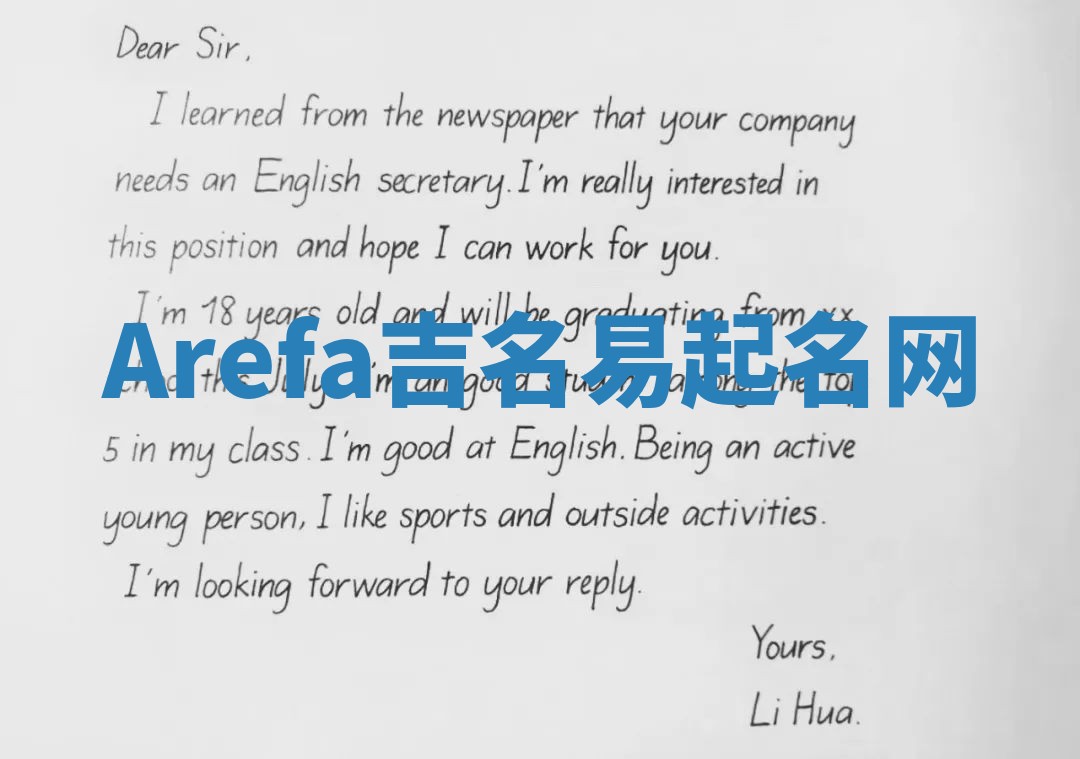 Dear Sir,
I learned from the newspaper that your company
needs an English secretary. I'm really interested in
this position and hope I can work for you.
I'm 18 years old and will be graduating from xx
Arefa吉名易起名网
this July. I'm an good student among the top
5 in my class. I'm good at English. Being an active
young person, I like sports and outside activities.
I'm looking forward to your reply.
Yours,
Li Hua.